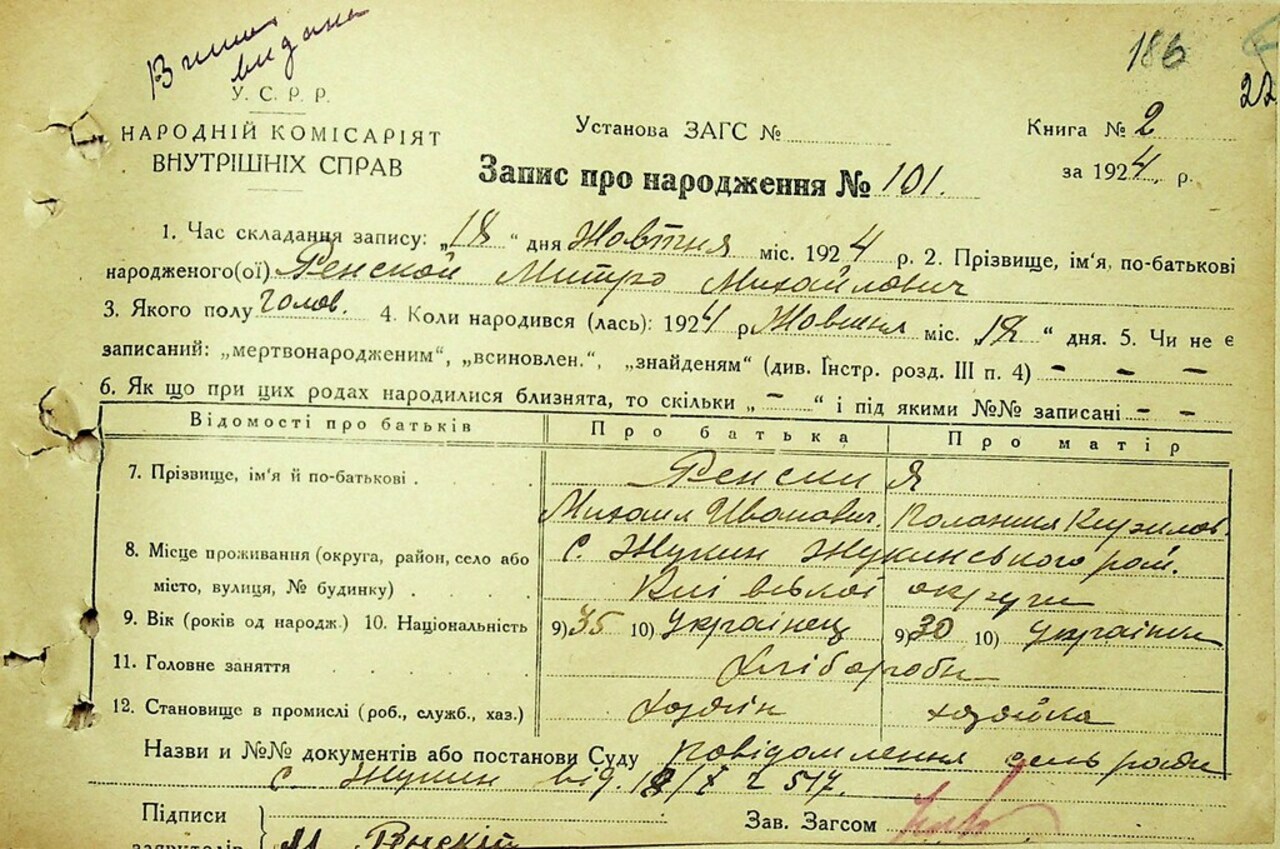 Випис видано
186
22
У. С. Р. Р.
НАРОДНІЙ КОМІСАРІЯТ
ВНУТРІШНІХ СПРАВ
Установа ЗАГС №
Книга № 2
за 1924 р.
Запис про народження № 101.
1. Час складання запису: „18“ дня Жовтня міс. 1924 р. 2. Прізвище, ім'я, по-батькові
народженого(ої) Ренской Митро Михайлович
3. Якого полу Голов. 4. Коли народився (лась): 1924 р Жовтня міс. „18“ дня. 5. Чи не є
записаний: „мертвонародженим“, „всиновлен.“, „знайденям“ (див. Інстр. розд. III п. 4) – – –
6. Як що при цих родах народилися близнята, то скільки „ – “ і під якими №№ записані – –
Відомості про батьків Про батька Про матір
7. Прізвище, ім'я й по-батькові . Ренски Я
Михаил Иванович.
8. Місце проживання (округа, район, село або с. Жукин Жукинського рай.
місто, вулиця, № будинку) . . Київської округи
9. Вік (років од народж.) 10. Національність 9) 35 10) Українец 9) 30 10) Українка
11. Головне заняття Хлібороби
12. Становище в промислі (роб., служб., хаз.) хозяін хозяйка
Назви и №№ документів або постанови Суду повідомлення сель ради
с. Жукин від. 18/X 517.
Підписи
заявителів М Ренскій
Зав. Загсом